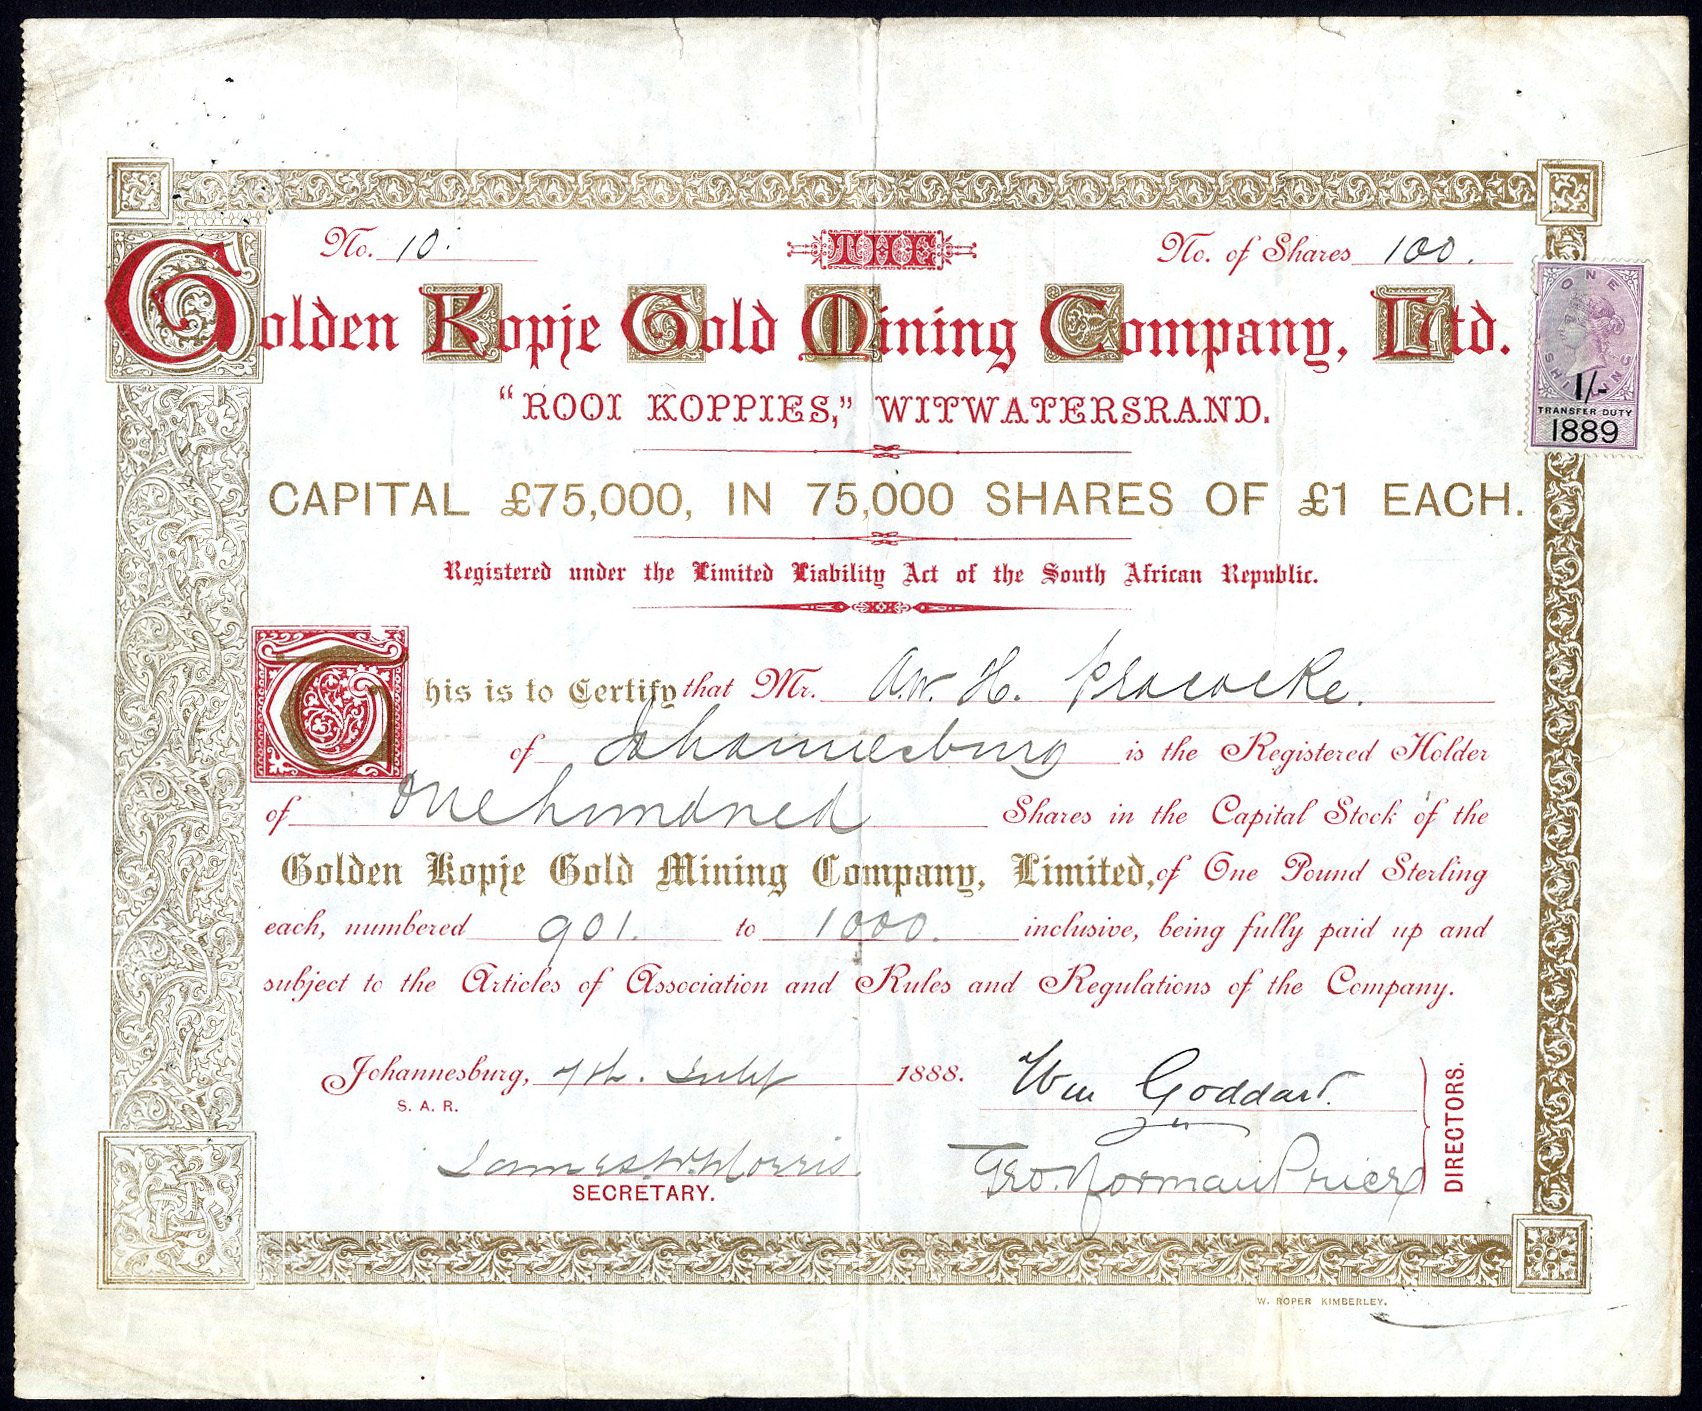 No. 10. THE No. of Shares 100.
Golden Kopje Gold Mining Company, Ltd.
"ROOI KOPPIES," WITWATERSRAND.
ONE SHILLING
1/-
TRANSFER DUTY
1889
CAPITAL £75,000, IN 75,000 SHARES OF £1 EACH.
Registered under the Limited Liability Act of the South African Republic.
This is to Certify that Mr. A.W. H. Peacocke.
of Johannesburg is the Registered Holder
of One hundred Shares in the Capital Stock of the
Golden Kopje Gold Mining Company, Limited, of One Pound Sterling
each, numbered 901. to 1000. inclusive, being fully paid up and
subject to the Articles of Association and Rules and Regulations of the Company.
Johannesburg, 7th. July 1888. Wm Goddard.
S. A. R.
James W. Morris. Geo. Norman Price
SECRETARY.
DIRECTORS.
W. ROPER KIMBERLEY.